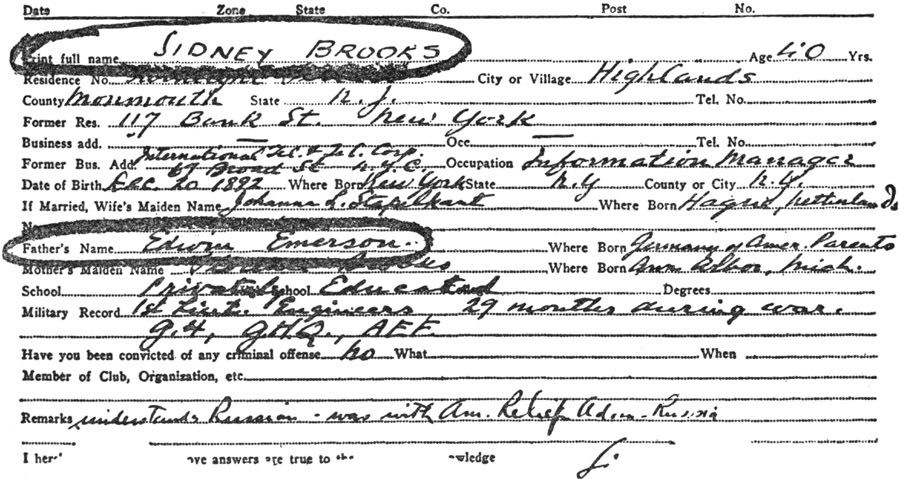 Date Zone State Co. Post No.
Print full name SIDNEY BROOKS Age 40 Yrs.
Residence No. City or Village Highlands
County Monmouth State N.J. Tel. No.
Former Res. 117 Bank St. New York
Business add. — Occ — Tel. No.
Former Bus. Add International Tel. & Tel. Corp. 67 Broad St N.Y.C. Occupation Information Manager
Date of Birth Dec. 20 1892 Where Born New York State N.Y County or City N.Y.
If Married, Wife's Maiden Name Johanna L. Where Born
Father's Name Edwin Emerson. Where Born Germany of Amer. Parents
Mother's Maiden Name Where Born Ann Arbor, Mich.
School Privately School Educated Degrees
Military Record 1st Lieut. Engineers 29 months during war.
G.4, G.H.Q., AEF
Have you been convicted of any criminal offense no What When
Member of Club, Organization, etc.
Remarks understands Russian - was with Am. Relief Adm. Russia
I here ove answers are true to the wledge